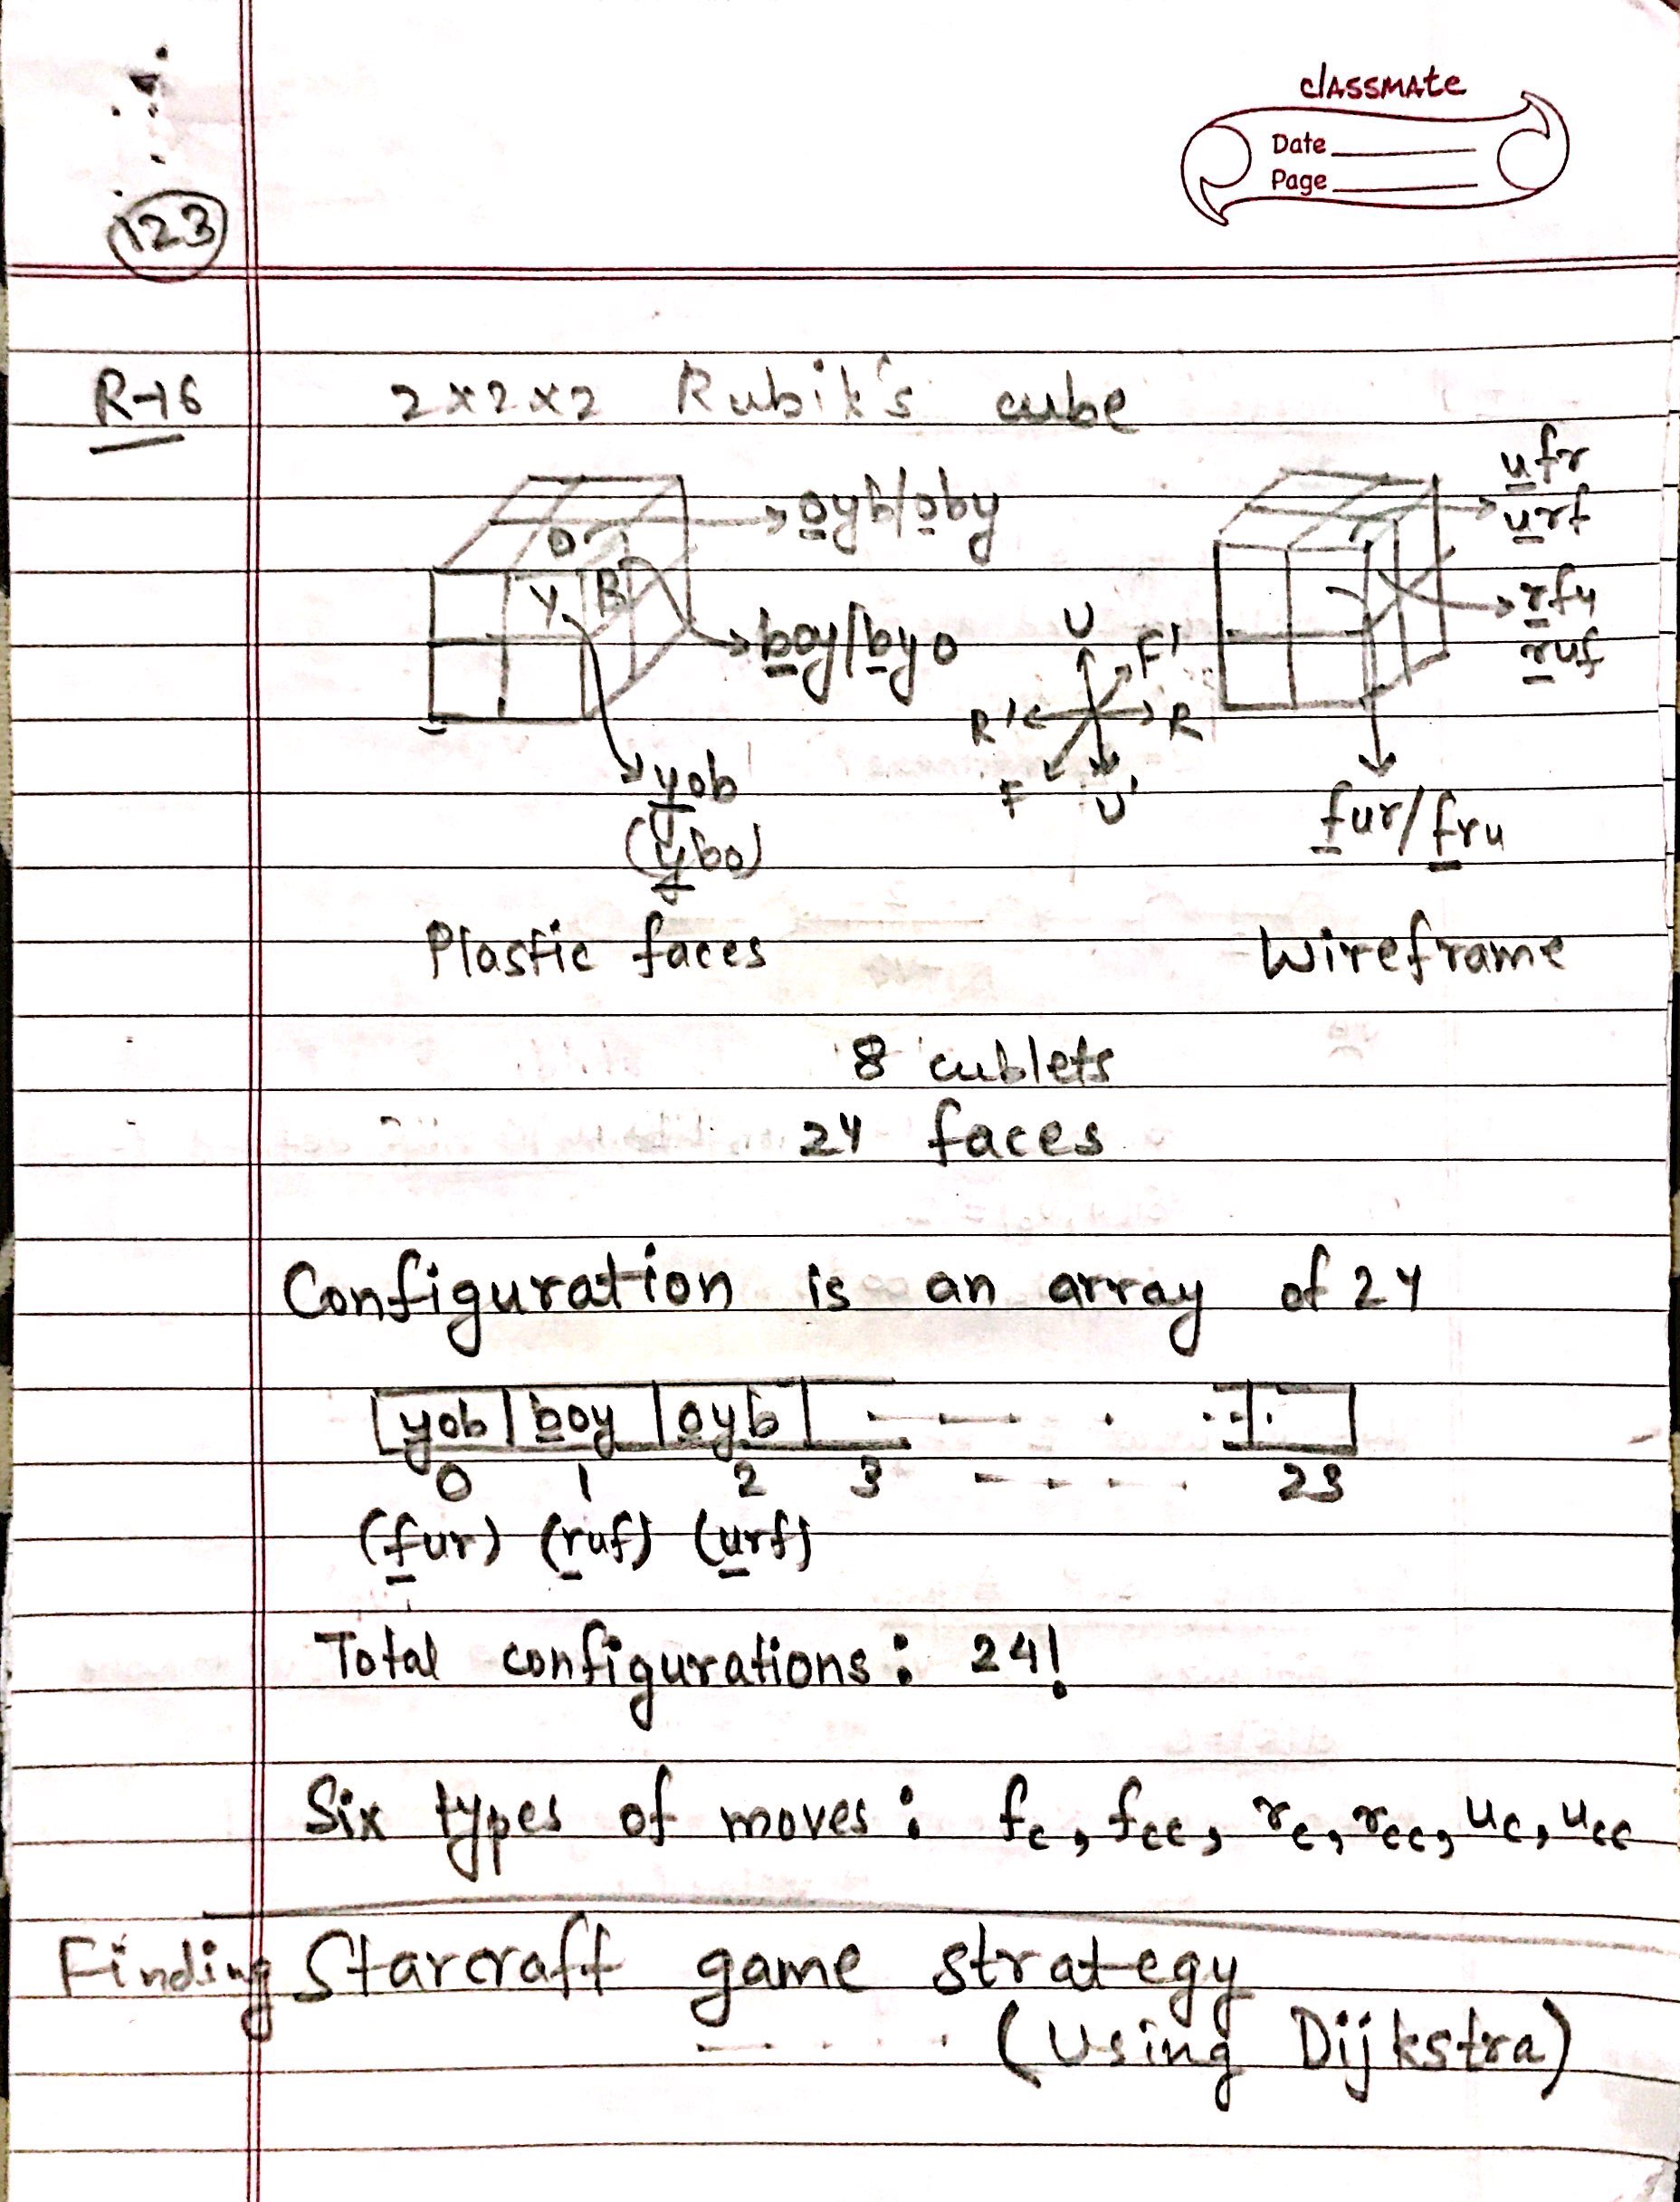 classmate
Date
Page
123
R-16 2x2x2 Rubik's cube
oyb/oby
O
Y B
boy/byo
yob
(ybo)
U
F'
R' R
F U'
ufr
urf
rfu
ruf
fur/fru
Plastic faces Wireframe
8 cublets
24 faces
Configuration is an array of 24
yob | boy | oyb |
0 1 2 3 - - - - - 23
(fur) (ruf) (urf)
Total configurations: 24!
Six types of moves: fc, fcc, rc, rcc, uc, ucc
Finding Starcraft game strategy
(Using Dijkstra)